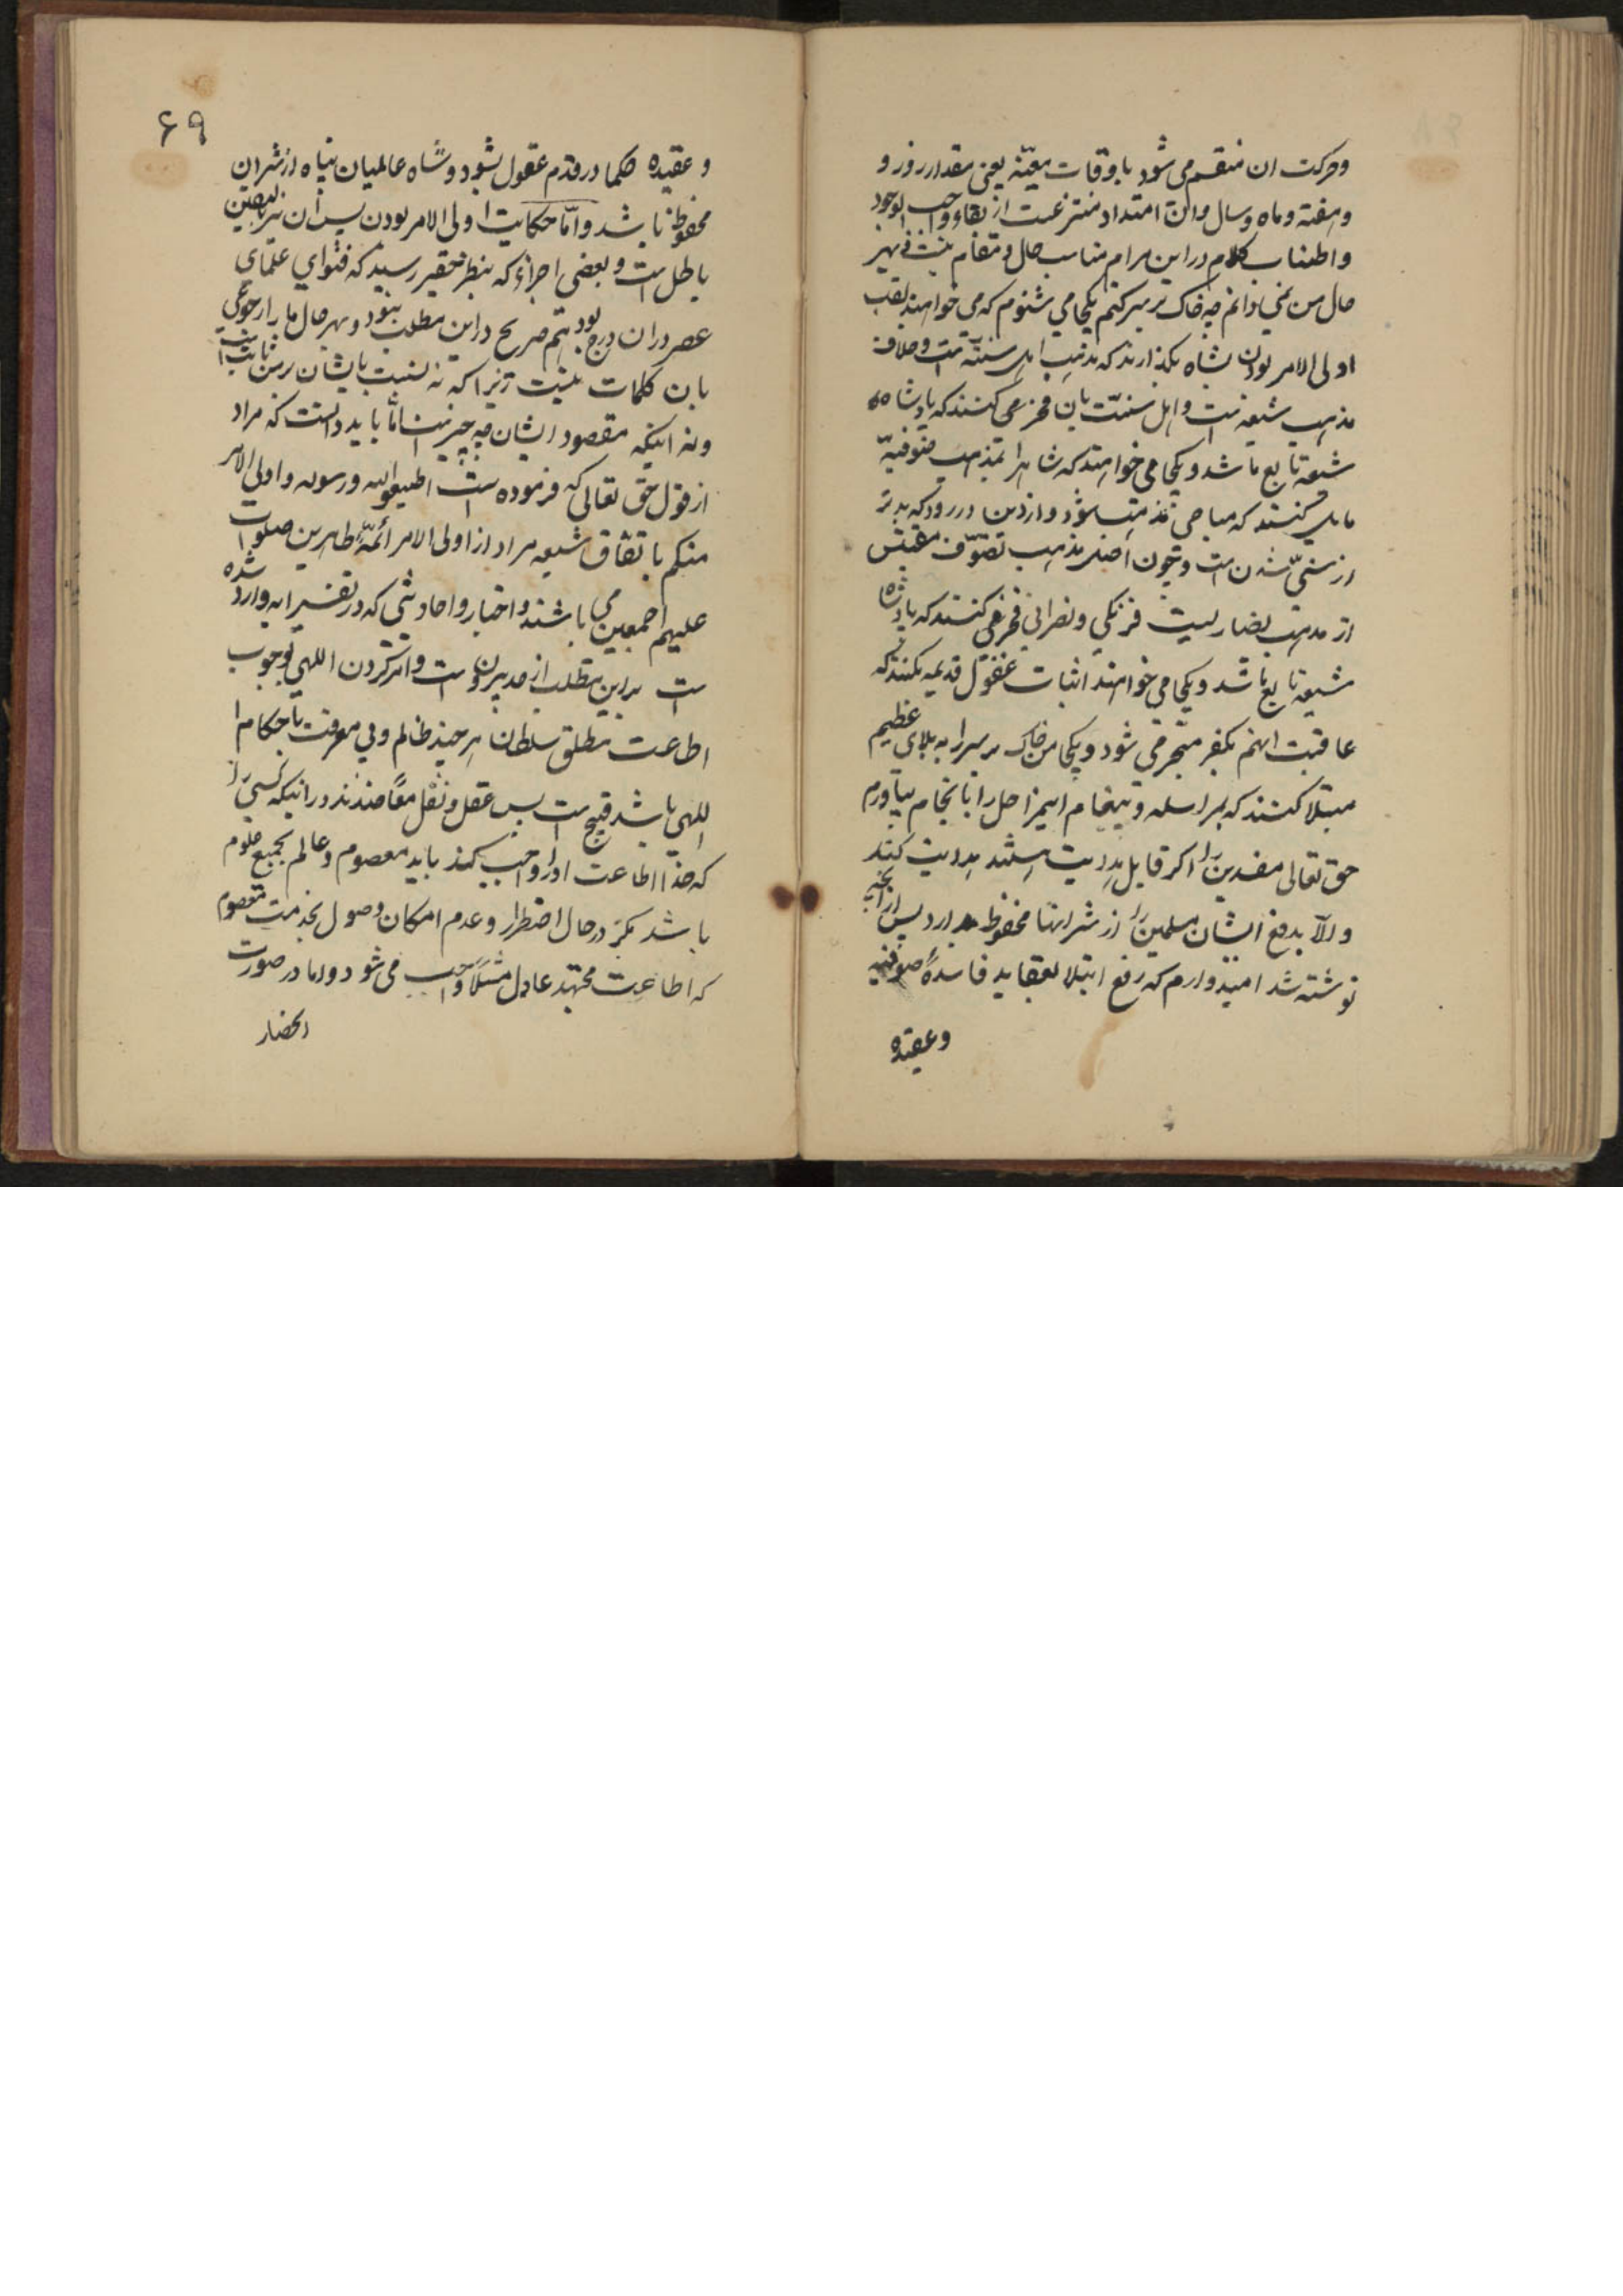 وحرکت ان منقسم می شود باوقات معیّنه یعنی مقدار روز و
وهفته وماه وسال وان امتداد منتزعست از بقاء واجب الوجود
واطناب کلام در این مرام مناسب حال ومقام نیست فی نهیز
حال من نمی دانم چه خاک بر سر کنم یکجا می شنوم که می خواهند لقب
اولی الامر بودن بشاه بگذارند که مذهب اهل سنته است وخلاف
مذهب شیعه است واهل سنّت بان فخر می کنند که پادشاه
شیعه تابع ما شد ویکجا می خواهند که شاه را بمذهب صوفیّه
مایل کنند که مباحی مذهب شود واز دین در رود که بدتر
از سنّی شدن است وچون اصل مذهب تصوّف مقتبس
از مذهب نصاریست فرنگی ونصرانی فخر می کنند که پادشاه
شیعه تابع ما شد ویکجا می خواهند اثبات عقول قدیمه بکنند که
عاقبت انهم بکفر منجر می شود ویکجا من خاک بر سر را به بلای عظیم
مبتلا کنند که بمراسله وپیغام این مراحل را بانجام بیاورم
حق تعالی مفسدین را اگر قابل هدایت هستند هدایت کند
والّا بدفع ایشان مسلمین را از شر انها محفوظ بدارد پس از آنچه
نوشته شد امیدوارم که رفع ابتلا بعقاید فاسدهٔ صوفیه
وعقیده
۶۹
وعقیده حکما در قدم عقول بشود وشاه عالمیان پناه از شر ان
محفوظ باشد وامّا حکایت اولی الامر بودن پس آن نیز بیقین
باطل است وبعضی اجزاء که بنظر حقیر رسید که فتوای علمای
عصر در ان درج بود هم صریح در این مطلب نبود وبهر حال ما را رجوعی
بان کلمات نیست زیرا که نه نسبت بایشان بر من ثابت است
ونه اینکه مقصود ایشان چه چیز است امّا باید دانست که مراد
از قول حق تعالی که فرموده است اطیعوا الله ورسوله واولی الامر
منکم باتفاق شیعه مراد از اولی الامر ائمّهٔ طاهرین صلوات
علیهم اجمعین می باشند واخبار واحادیثی که در تفسیر ایه وارد شده
است بر این مطلب از حد بیرون است وامر کردن اللهی بوجوب
اطاعت مطلق سلطان هر چند ظالم وبی معرفت باحکام
اللهی باشد قبیح است پس عقل ونقل معاضدند در اینکه کسی را
که خدا اطاعت او را واجب کند باید معصوم وعالم بجمیع علوم
باشد مگر در حال اضطرار وعدم امکان وصول بخدمت معصوم
که اطاعت مجتهد عادل مثلاً واجب می شود واما در صورت
انحصار